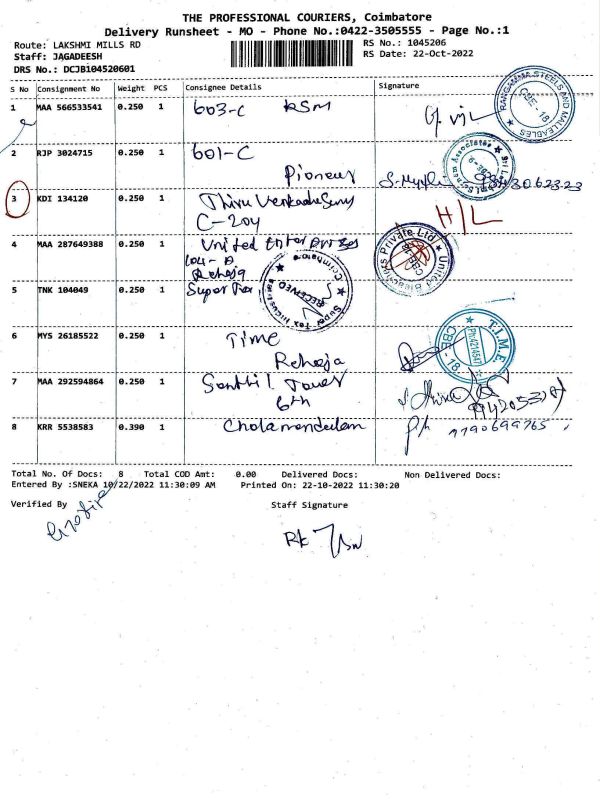 THE PROFESSIONAL COURIERS, Coimbatore
Delivery Runsheet - MO - Phone No.:0422-3505555 - Page No.:1
Route: LAKSHMI MILLS RD
RS No.: 1045206
Staff: JAGADEESH
RS Date: 22-Oct-2022
DRS No.: DCJBI04520601
S No Consignment No Weight PCS Consignee Details Signature
1 MAA 566533541 0.250 1 603-C RSM
RANGAMMA STEELS AND MALLEABLES
CBE - 18
2 RJP 3024715 0.250 1 601-C
Pioneer
3 KDI 134120 0.250 1
C-204
H/L
4 MAA 287649388 0.250 1 United Enterprises
104-D
Raheja
5 TNK 104049 0.250 1 Super Tex
RECEIVED
Coimbatore
6 MYS 26185522 0.250 1 Time
Raheja
T.I.M.E
CBE - 18
7 MAA 292594864 0.250 1 Senthil Tower
6th
8 KRR 5538583 0.390 1 Cholamandalam
7790699765
Total No. Of Docs: 8 Total COD Amt: 0.00 Delivered Docs: Non Delivered Docs:
Entered By :SNEKA 10/22/2022 11:30:09 AM Printed On: 22-10-2022 11:30:20
Verified By Staff Signature